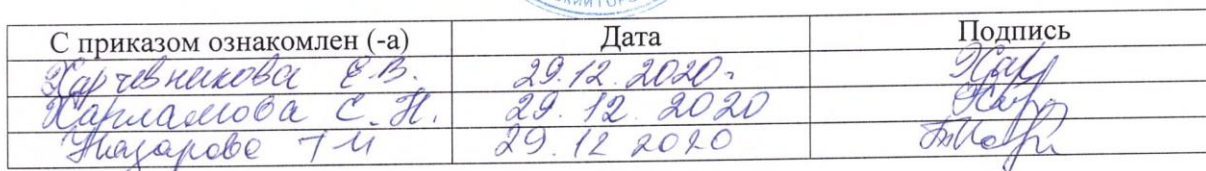 С приказом ознакомлен (-а) Дата Подпись
Харчевникова Е.В. 29.12.2020.
Харламова С.Н. 29.12.2020
Назарова ТИ 29.12 2020